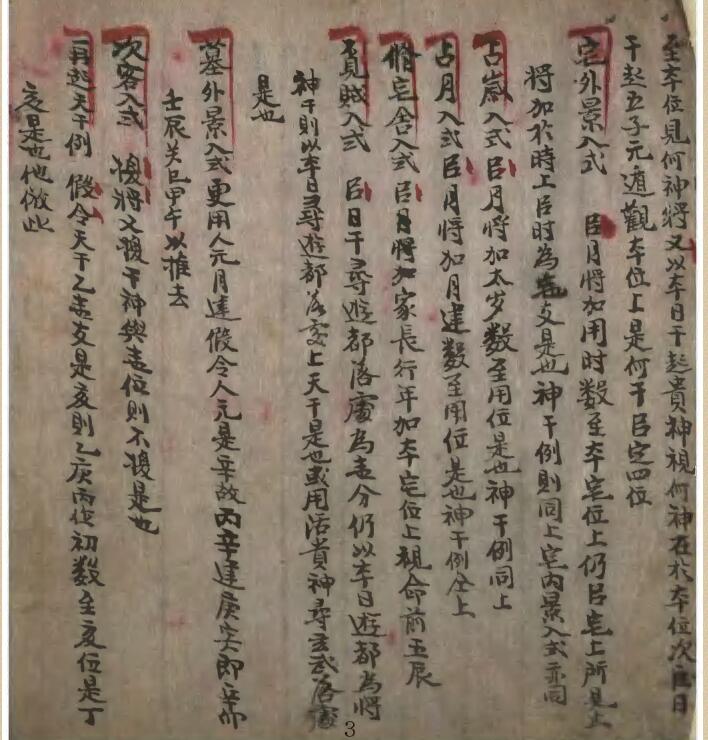 至本位見何神將又以本日干起貴神視何神在於本位次
干起五子元遁觀本位上是何干㠯定四位
宅外景入式　㠯月將加用时數至本宅位上仍㠯宅上所見上
將加於時上㠯时為支是也神干例則同上宅內景入式亦同
占歲入式㠯月將加太岁數至用位是也神干例同上
占月入式㠯月將加月建數至用位是也神干例仝上
脩宅舍入式㠯月將加家長行年加本宅位上視命前五辰
覓賊入式　㠯日干尋遊都落處為支分仍以本日遊都為將
神干則以本日尋遊都落處上天干是也或用活貴神尋玄武落處
是也
墓外景入式更用人元月建假令人元是辛故丙辛建庚寅即辛卯
壬辰关巳甲午以推去
次客入式　復將又復干神與支位則不復是也
再起天干例　假令天干乙支是亥則乙庚丙作初數至亥位是丁
亥是也他倣此
3